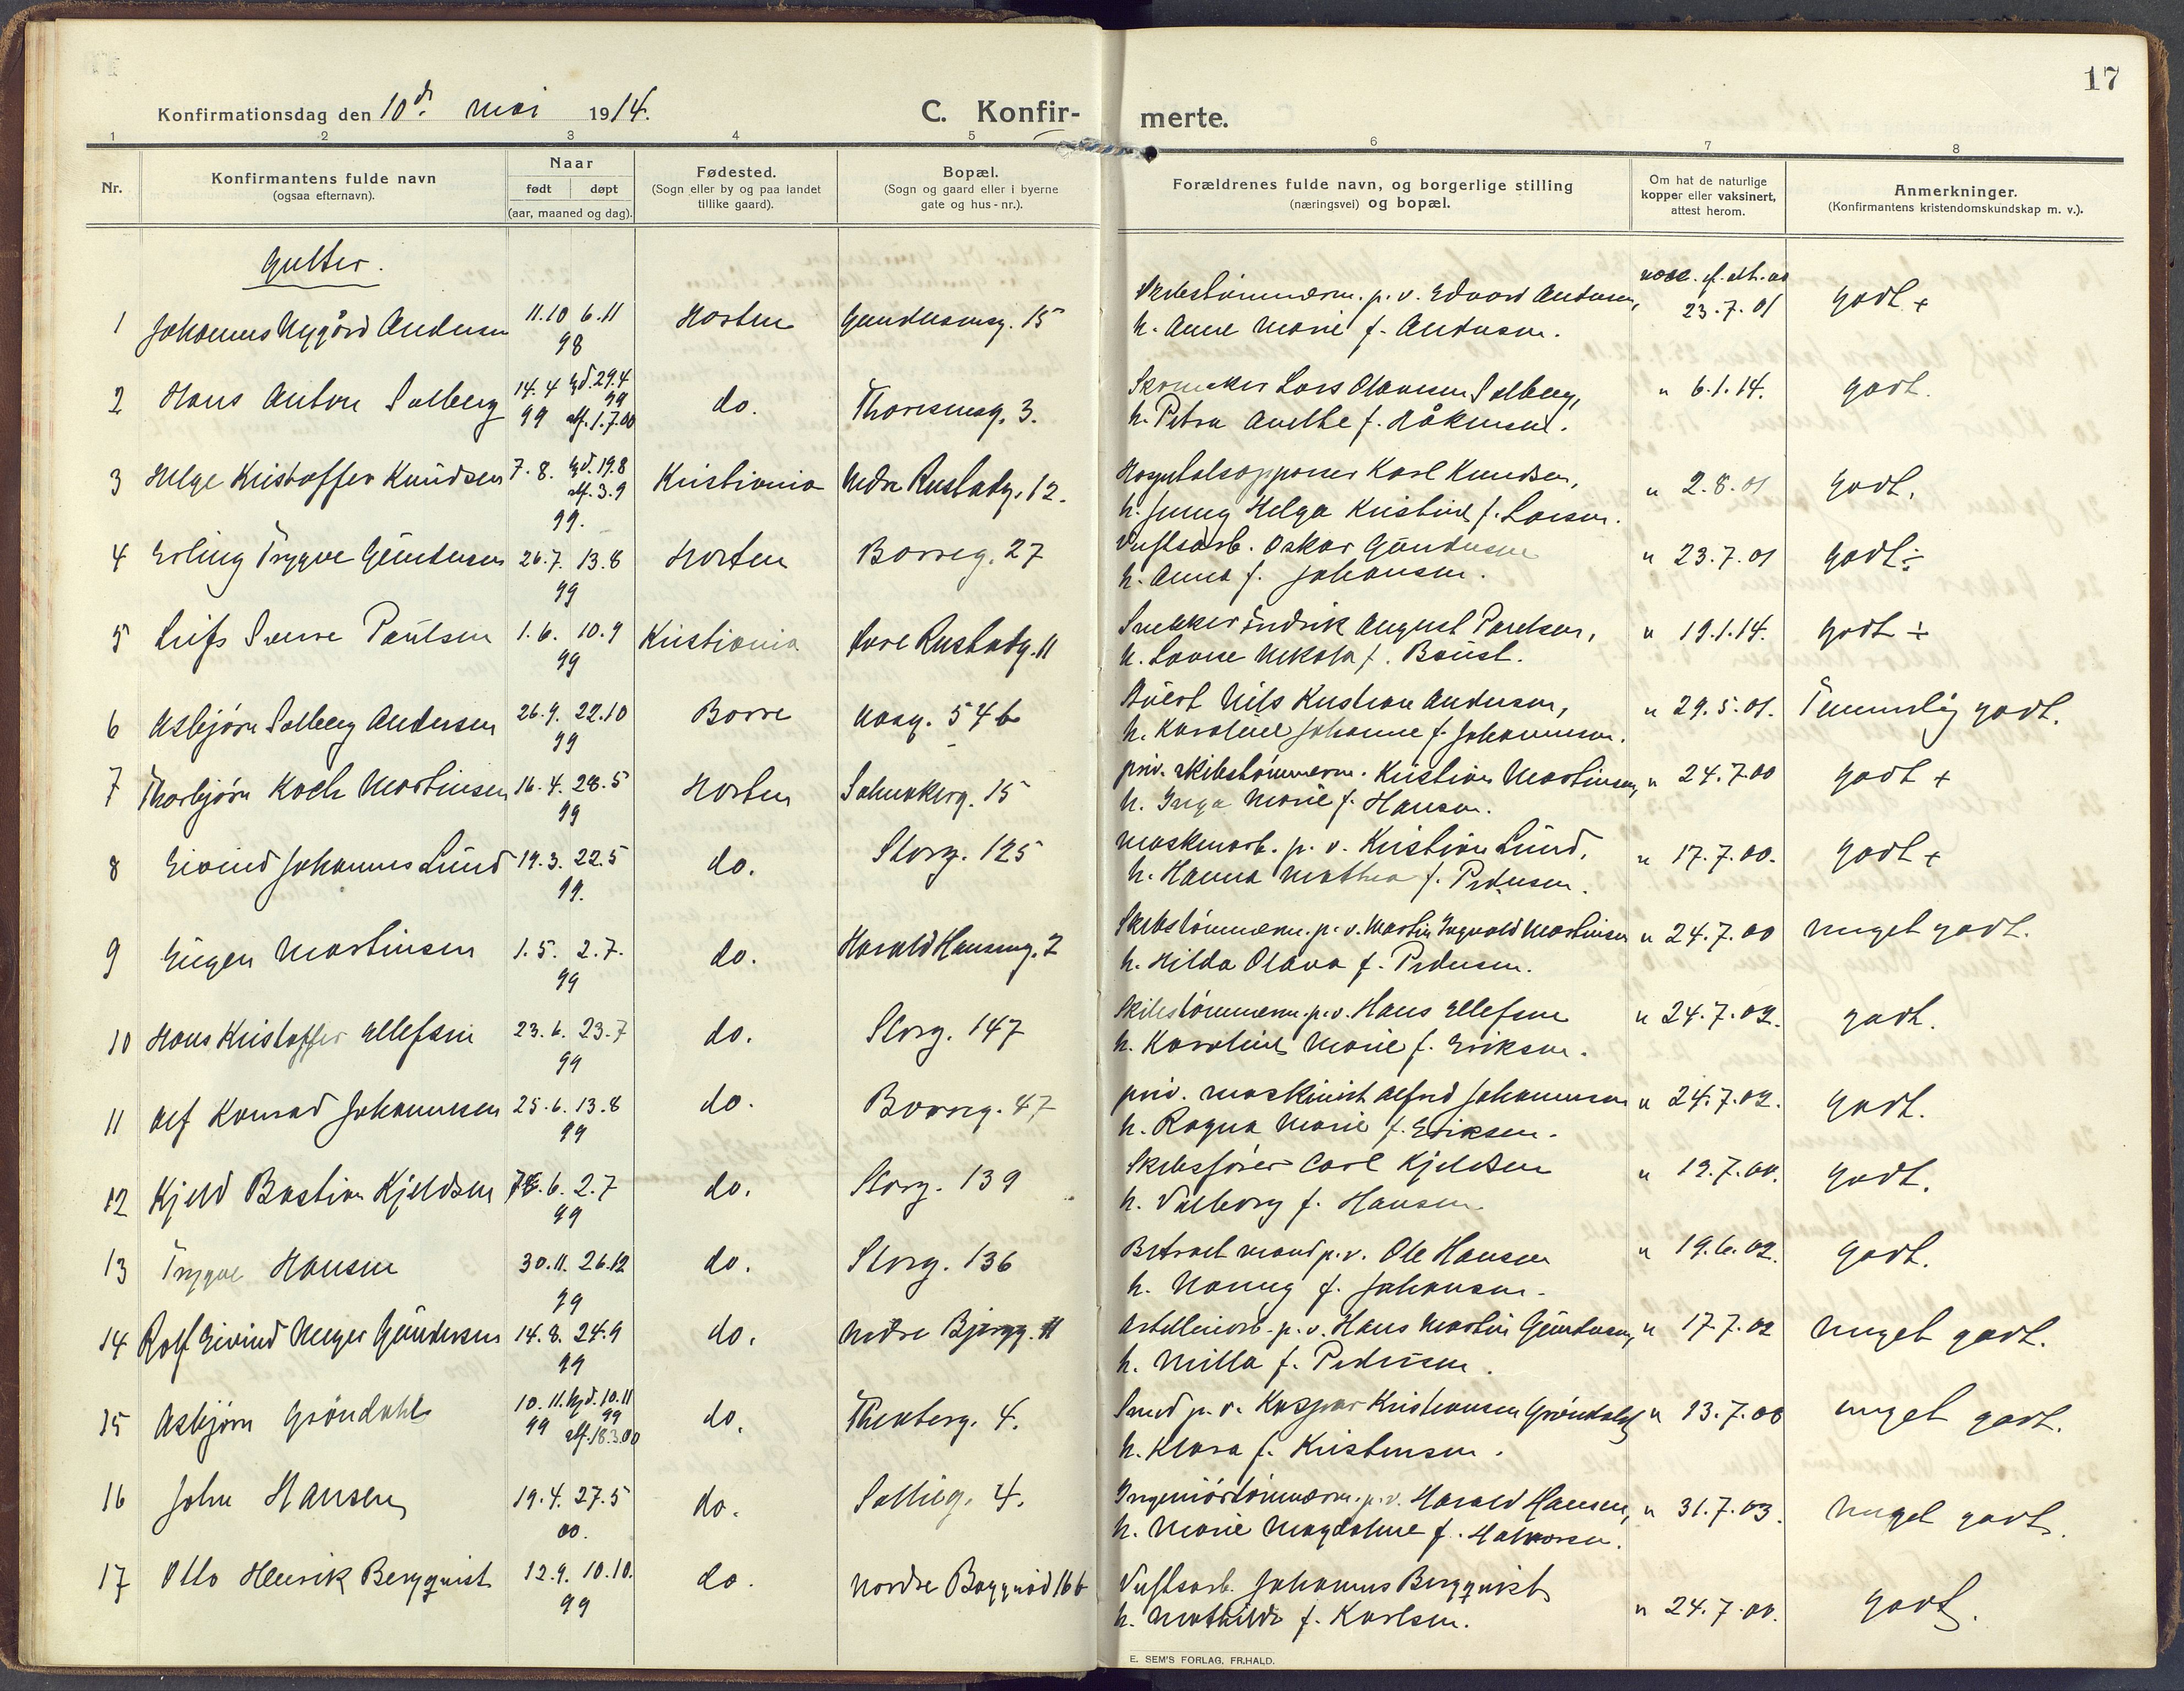 17
Konfirmationsdag den 10de mai 1914.
C. Konfir-merte.
1 2 3 4 5 6 7 8
Nr.
Konfirmantens fulde navn
(ogsaa efternavn).
Naar
født døpt
(aar, maaned og dag).
Fødested.
(Sogn eller by og paa landet
tillike gaard).
Bopæl.
(Sogn og gaard eller i byerne
gate og hus-nr.).
Forældrenes fulde navn, og borgerlige stilling
(næringsvei) og bopæl.
Om hat de naturlige
kopper eller vaksinert,
attest herom.
Anmerkninger.
(Konfirmantens kristendomskundskap m. v.).
Gutter.
1 Johannes Nygård Andersen 11.10 6.11 98 Horten Gundersensg. 15 Skibstømmerm. p. v. Edvard Andersen, vacc. if. att. av 23.7.01 godt +
h. Anne Marie f. Andersen.
2 Hans Anton Solberg 14.4 99 hjd. 29.4 99 alf. 1.7.00 do. Thoresensg. 3. Skomaker Lars Olavesen Solberg, " 6.1.14. godt.
h. Petra Anethe f. Håkensen.
3 Helge Kristoffer Knudsen 7.8. hjd. 19.8 alf. 3.9 99. Kristiania Nedre Rustadg. 12. Hospitalsoppasser Karl Knudsen, " 2.8.01 godt.
h. Jenny Helga Kristine f. Larsen.
4 Erling Trygve Gundersen 26.7. 13.8 99 Horten Borreg. 27 Verftsarb. Oskar Gundersen " 23.7.01 godt ÷
h. Anna f. Johansen.
5 Leifs Sverre Paulsen 1.6. 10.9 99 Kristiania Øvre Rustadg. 11 Snekker Endrik August Paulsen, " 19.1.14. godt ÷
h. Lovise Nikola f.
6 Asbjørn Solberg Andersen 26.9. 22.10 99 Borre 54 b Nils Kristian Andersen, " 29.5.01. Temmelig godt.
h. Karoline Johanne f. Johannesen.
7 Thorbjørn Koch Martinsen 16.4. 28.5 99 Horten 15 priv. skibstømmerm. Kristian Martinsen, " 24.7.00 godt +
h. Inga Marie f. Hansen.
8 Eivind Johannes Lund 19.3. 22.5 99. do. Storg. 125 Maskinarb. p. v. Kristian Lund, " 17.7.00. godt +
h. Hanna Mathea f. Pedersen.
9 Eugen Martinsen 1.5. 2.7. 99 do. Harald Hansensg. 2 Skibstømmerm. p. v. Martin Ingvald Martinsen " 24.7.00 meget godt.
h. Hilda Olava f. Pedersen.
10 Hans Kristoffer Ellefsen 23.6. 23.7 99 do. Storg. 147 Skibstømmerm. p. v. Hans Ellefsen " 24.7.02. godt.
h. Karoline Marie f. Eriksen.
11 Alf Konrad Johannesen 25.6. 13.8 99 do. Borreg. 47 priv. maskinist Alfred Johannesen " 24.7.02. godt.
h. Ragna Marie f. Eriksen.
12 Kjeld Bastian Kjeldsen 6. 2.7 99 do. Storg. 139 Skibsfører Carl Kjeldsen " 19.7.00. godt.
h. Valborg f. Hansen.
13 Trygve Hansen 30.11. 26.12 99 do. Storg. 136 mand p. v. Ole Hansen " 19.6.02. godt.
h. Nanny f. Johansen.
14 Rolf Eivind Meyer Gundersen 14.8. 24.9 99 do. Nedre Bjergg. 11 Artilleriarb. p. v. Hans Martin Gundersen, " 17.7.02 meget godt.
h. Milla f. Pedersen.
15 Asbjørn Grøndahl 10.11. 99 hjd. 10.11 99 alf. 18.3.00 do. 4. Smed p. v. Kaspar Kristiansen Grøndahl, " 13.7.00 meget godt.
h. Klara f. Kristensen.
16 John Hansen 19.4. 27.5 00. do. Sollieg. 4. Ingeniørtømmerm. p. v. Harald Hansen, " 31.7.03. meget godt.
h. Marie Magdalene f. Halvorsen.
17 Otto Henrik Bergquist 12.9. 10.10. 99 do. Nordre 16 b Verftsarb. Johannes Bergquist " 24.7.00. godt.
h. Mathilde f. Karlsen.
E. SEM'S FORLAG, FR.HALD.